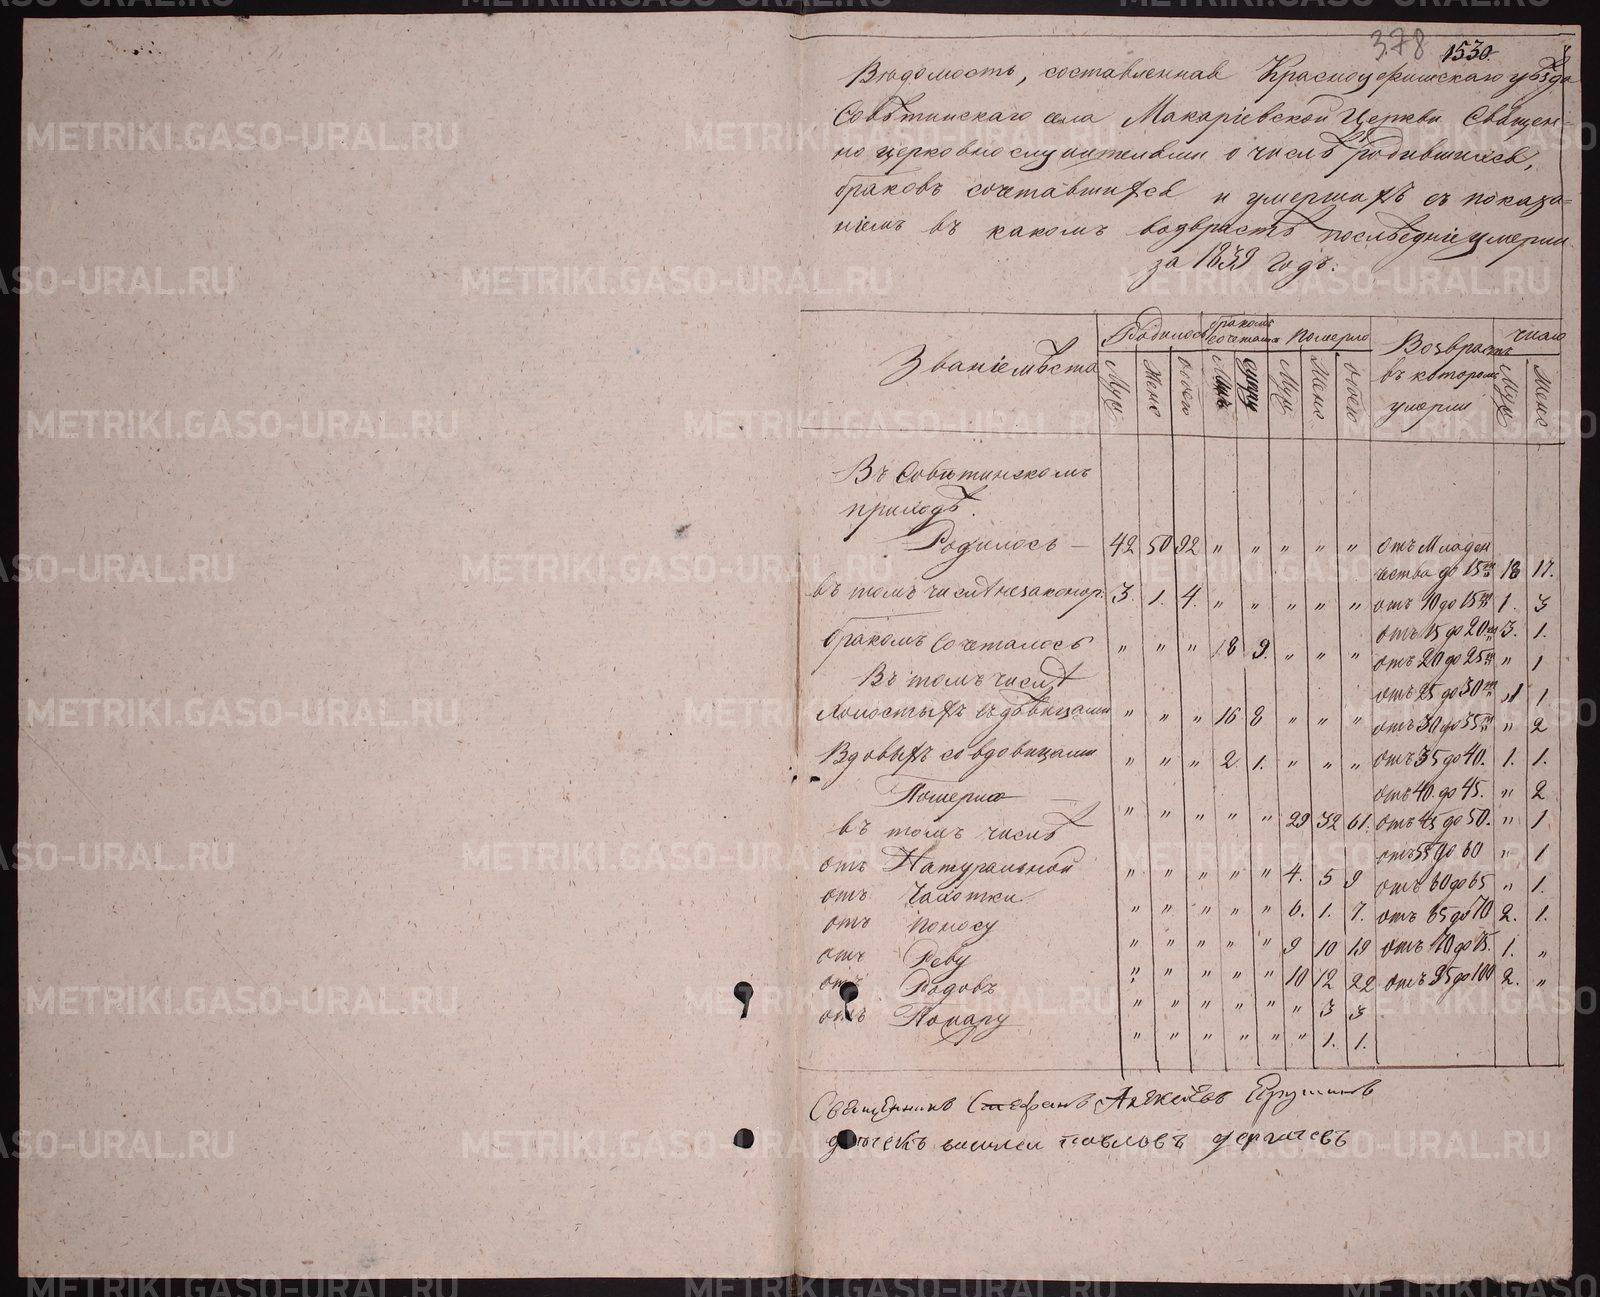 378 1530.
Вѣдомость, составленная Красноуфимскаго уѣзда
Совѣтинскаго села Макаріевской Церкви Священ-
но церковнослужителями о числѣ родившихся,
браковъ сочетавшихся и умершихъ съ показа-
ніемъ въ какомъ возврастѣ послѣдніе умерли
за 1839 годъ.
Званіе мѣста Родилось бракомъ сочетал Померло Возврастъ въ которомъ умерли число
Муж Женс обоего супру Муж Женс обоего Муж Женс
Въ Совѣтинскомъ
приходѣ.
Родилось — 42 50 92 " " " " " отъ Младен
чества до 15 18 17.
въ томъ числѣ незаконор. 3. 1. 4. " " " " " отъ 10 до 15 1. 3
отъ 15 до 20 3. 1.
бракомъ Сочеталось " " " 18 9. " " " отъ 20 до 25 " 1
Въ томъ числѣ
отъ 25 до 30 1 1
Холостыхъ съ дѣвицами " " " 16 8 " " " отъ 30 до 35 " 2
Вдовыхъ со вдовицами " " " 2. 1. " " " отъ 35 до 40. 1. 1.
Померло — отъ 40. до 45. " 2
" " " " " 29 32 61. отъ 45 до 50. " 1
въ томъ числѣ
отъ 55 до 60 " 1
отъ Натуральной " " " " " 4. 5 9 отъ 60 до 65 " 1.
отъ Чахотки " " " " " 6. 1. 7. отъ 65 до 70 2. 1.
отъ Поносу " " " " " 9 10 19 отъ 70 до 75. 1. "
отъ Реву " " " " " 10 12 22 отъ 95 до 100 2. "
отъ Родовъ " " " " " " 3 3
отъ Пожару " " " " " " 1. 1.
Священникъ Стефанъ Алексѣевъ
Павловъ Дергачевъ
METRIKI.GASO-URAL.RU